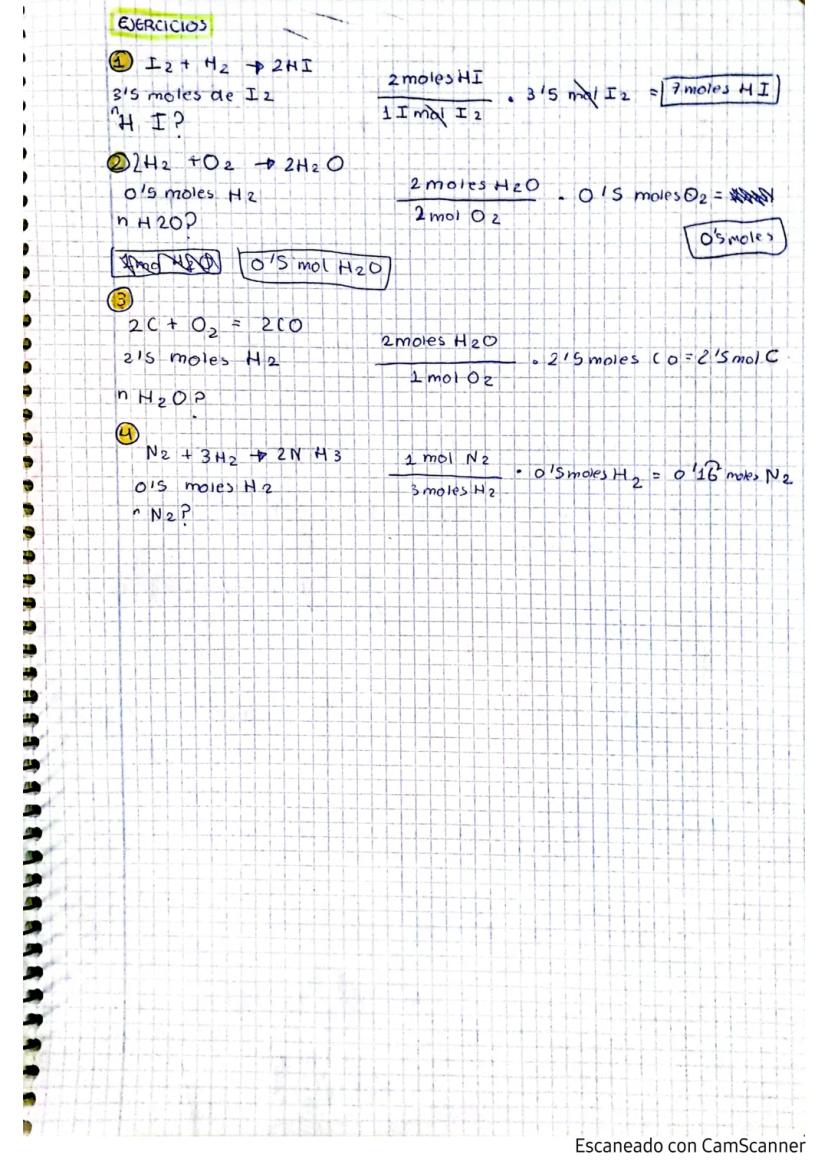 EJERCICIOS
① I2 + H2 → 2HI
3'5 moles de I2
nH I?
2 moles HI / 1 I mol I2 · 3'5 mol I2 = 7 moles HI
② 2H2 + O2 → 2H2O
0'5 moles H2
n H2O?
2 moles H2O / 2 mol O2 · 0'5 moles O2 =
0'5 moles
0'5 mol H2O
③
2C + O2 = 2CO
2'5 moles H2
n H2O?
2 moles H2O / 1 mol O2 · 2'5 moles CO = 2'5 mol C
④
N2 + 3H2 → 2N H3
0'5 moles H2
n N2?
1 mol N2 / 3 moles H2 · 0'5 moles H2 = 0'16 moles N2
Escaneado con CamScanner